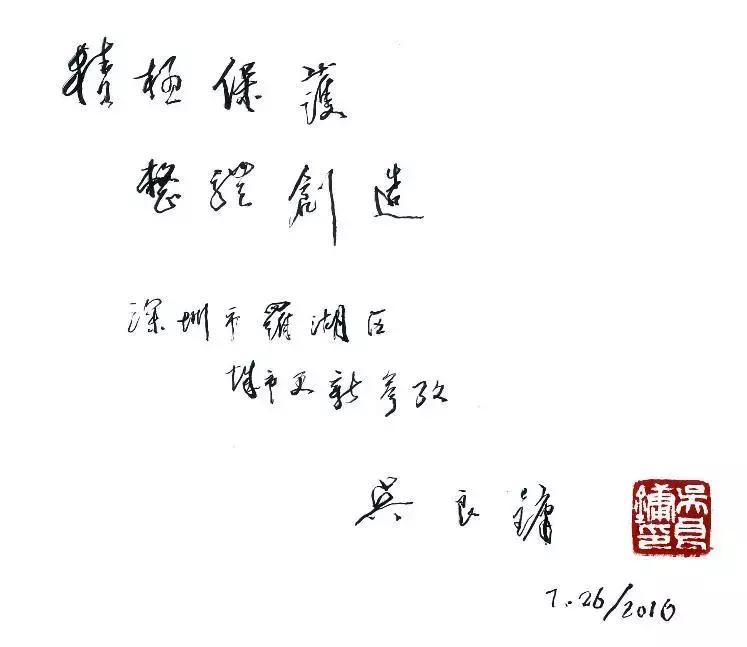 積極保護
整體創造
深圳市羅湖区
城市更新參攷
吳良鏞
吳良鏞印
7.26/2016